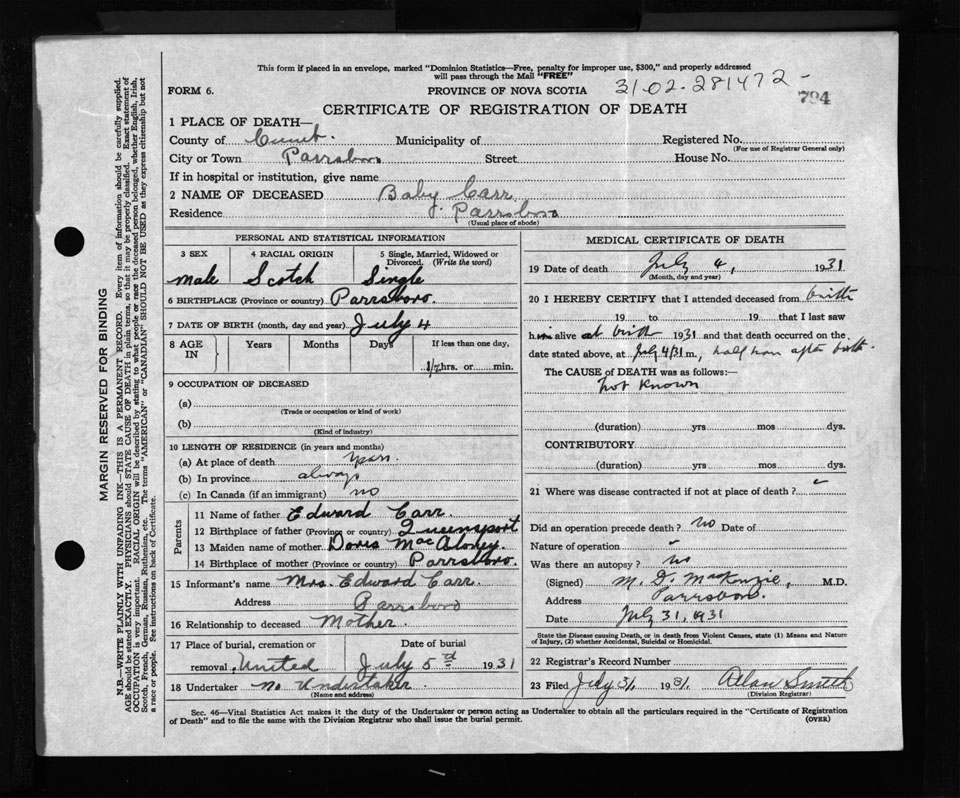 This form if placed in an envelope, marked "Dominion Statistics—Free, penalty for improper use, $300," and properly addressed
will pass through the Mail "FREE"
FORM 6.
PROVINCE OF NOVA SCOTIA
31-02-281472-
794
CERTIFICATE OF REGISTRATION OF DEATH
1 PLACE OF DEATH—
County of Cumb. Municipality of Registered No.
(For use of Registrar General only)
City or Town Parrsboro Street House No.
If in hospital or institution, give name
2 NAME OF DECEASED Baby Carr
Residence Parrsboro
(Usual place of abode)
PERSONAL AND STATISTICAL INFORMATION
3 SEX 4 RACIAL ORIGIN 5 Single, Married, Widowed or Divorced. (Write the word)
male Scotch Single
6 BIRTHPLACE (Province or country) Parrsboro.
7 DATE OF BIRTH (month, day and year) July 4
8 AGE IN Years Months Days If less than one day,
1/2 hrs. or min.
9 OCCUPATION OF DECEASED
(a)
(Trade or occupation or kind of work)
(b)
(Kind of industry)
10 LENGTH OF RESIDENCE (in years and months)
(a) At place of death
(b) In province always
(c) In Canada (if an immigrant) no
Parents
11 Name of father Edward Carr
12 Birthplace of father (Province or country) Queensport
13 Maiden name of mother Doris MacAloney.
14 Birthplace of mother (Province or country) Parrsboro.
15 Informant's name Mrs. Edward Carr.
Address Parrsboro
16 Relationship to deceased Mother
17 Place of burial, cremation or Date of burial
removal United July 5 1931
18 Undertaker No Undertaker
(Name and address)
MEDICAL CERTIFICATE OF DEATH
19 Date of death July 4, 1931
(Month, day and year)
20 I HEREBY CERTIFY that I attended deceased from birth
19 to 19 that I last saw
him alive at birth 1931 and that death occurred on
date stated above, at July 4/31 m., half hour after birth.
The CAUSE of DEATH was as follows:—
not known
(duration) yrs mos dys.
CONTRIBUTORY
(duration) yrs mos dys.
21 Where was disease contracted if not at place of death?
Did an operation precede death? no Date of
Nature of operation
Was there an autopsy? no
(Signed) M. D. MacKenzie, M.D.
Address Parrsboro.
Date July 31, 1931
State the Disease causing Death, or in death from Violent Causes, state (1) Means and Nature
of Injury, (2) whether Accidental, Suicidal or Homicidal.
22 Registrar's Record Number
23 Filed July 31, 1931. Allan Smith
(Division Registrar)
Sec. 46—Vital Statistics Act makes it the duty of the Undertaker or person acting as Undertaker to obtain all the particulars required in the "Certificate of Registration
of Death" and to file the same with the Division Registrar who shall issue the burial permit.
(OVER)
MARGIN RESERVED FOR BINDING
N.B.—WRITE PLAINLY WITH UNFADING INK—THIS IS A PERMANENT RECORD. Every item of information should be carefully supplied.
AGE should be stated EXACTLY. PHYSICIANS should STATE CAUSE OF DEATH in plain terms, so that it may be properly classified. Exact statement of
OCCUPATION is very important. RACIAL ORIGIN will be described by stating to what people or race the deceased person belonged, whether English, Irish,
Scotch, French, German, Russian, Ruthenian, etc. The terms "AMERICAN" or "CANADIAN" SHOULD NOT BE USED as they express citizenship but not
a race or people. See instructions on back of Certificate.